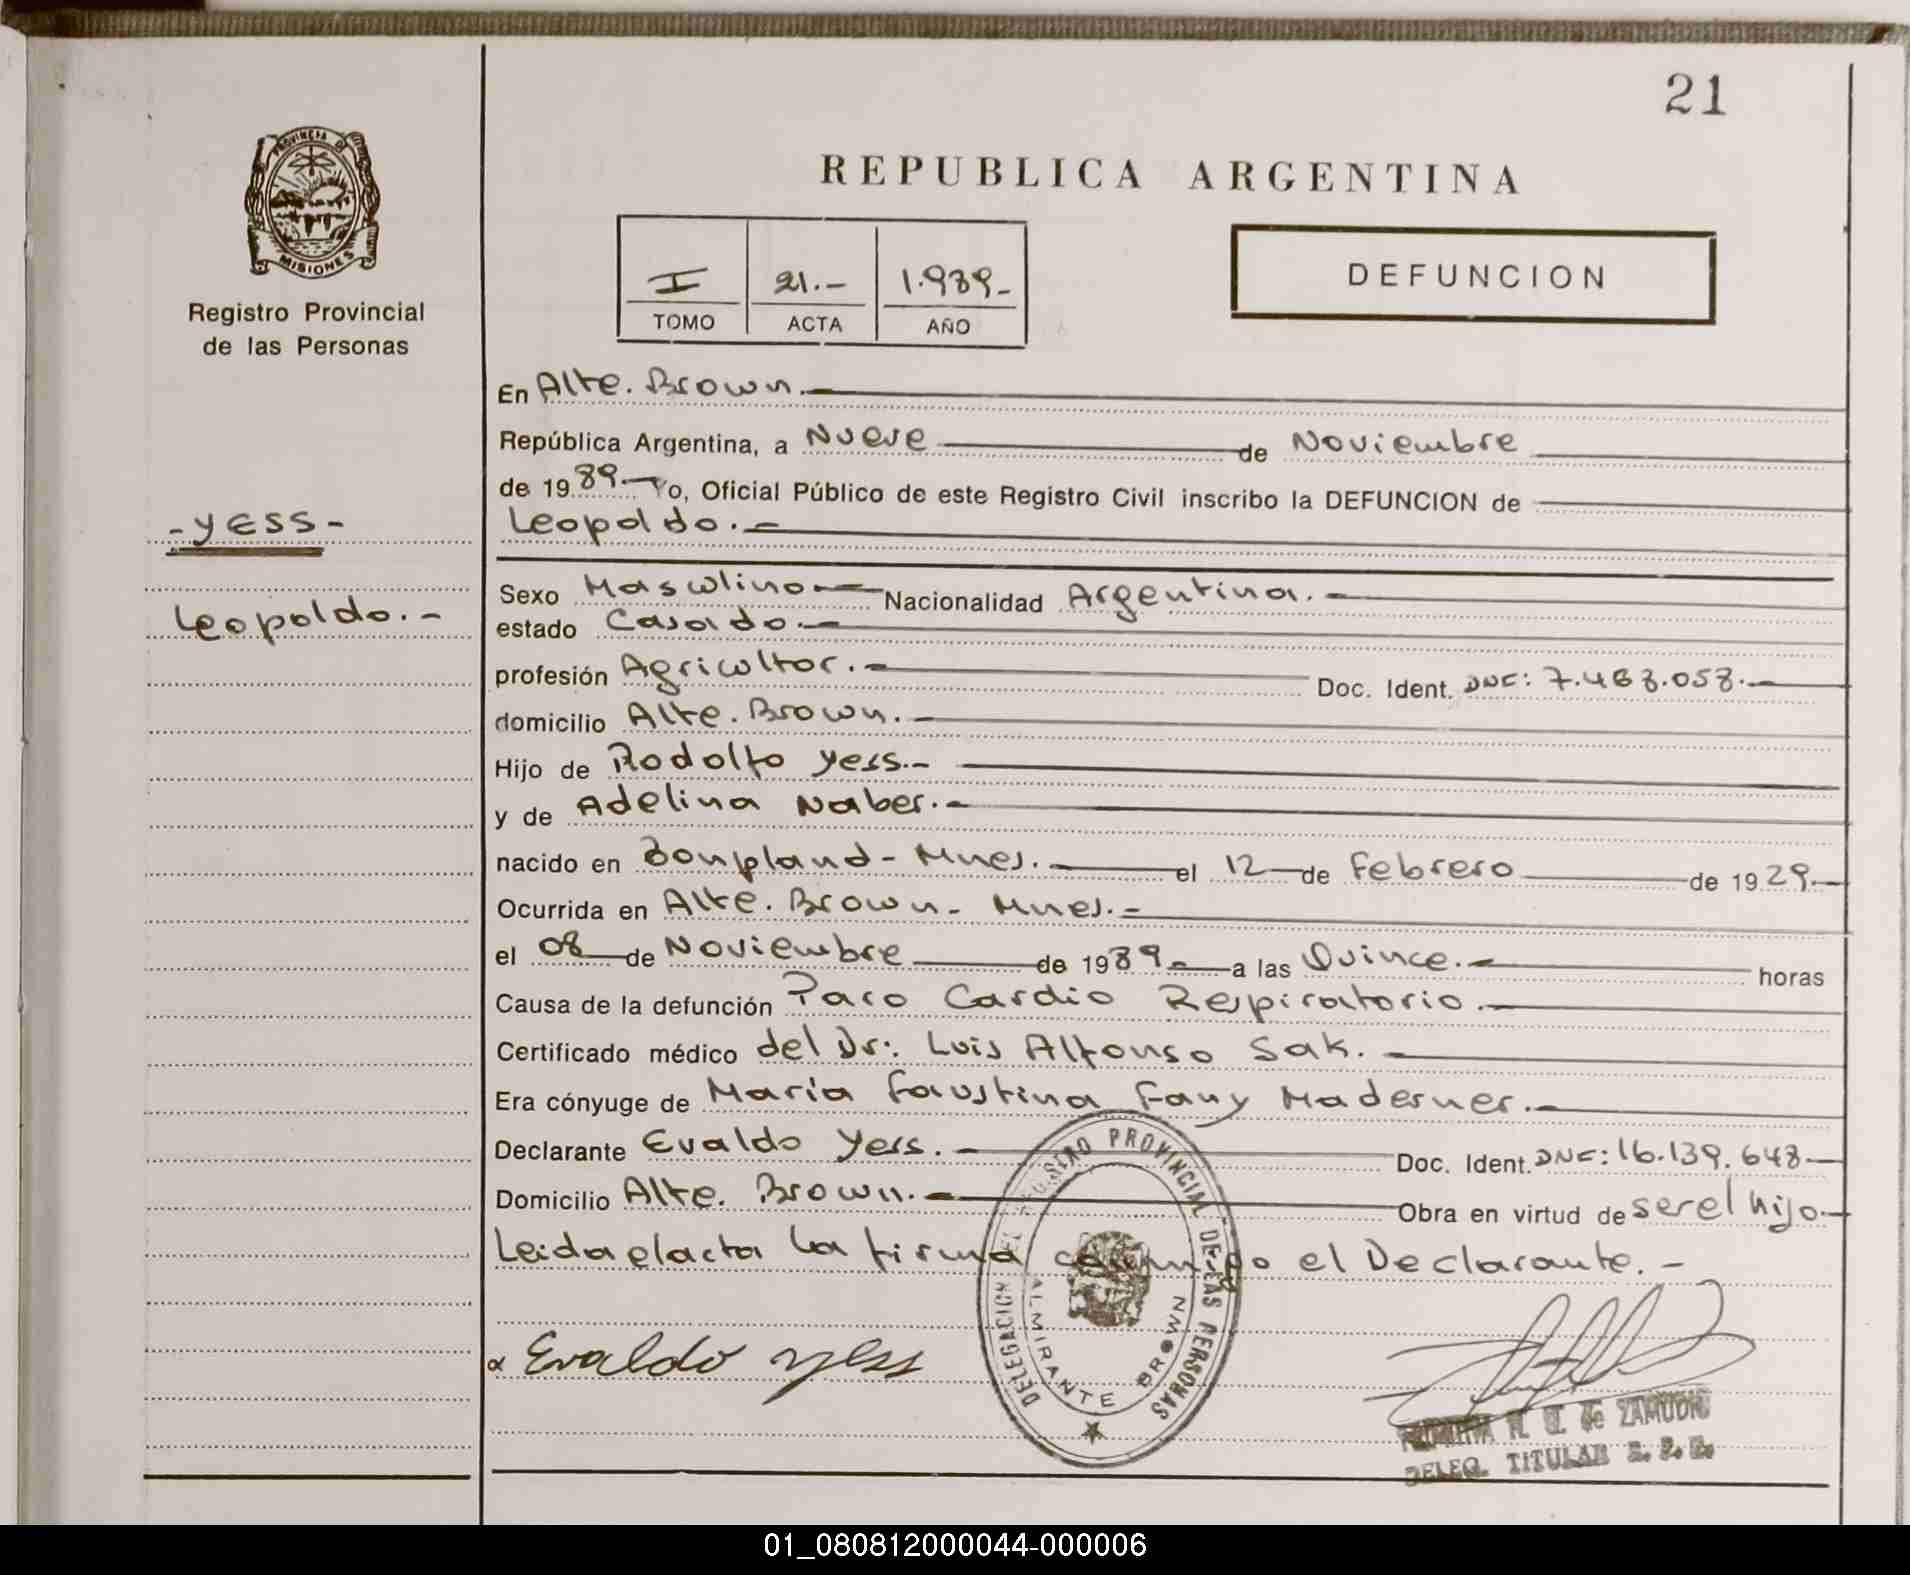 21
PROVINCIA DE
MISIONES
Registro Provincial
de las Personas
REPUBLICA ARGENTINA
I 21.- 1.989-
TOMO ACTA AÑO
DEFUNCION
- YESS -
Leopoldo.-
En Alte. Brown.
República Argentina, a Nueve de Noviembre
de 1989.- Yo, Oficial Público de este Registro Civil inscribo la DEFUNCION de
Leopoldo.-
Sexo Masculino Nacionalidad Argentina.-
estado Casado.-
profesión Agricultor.- Doc. Ident. DNI: 7.483.058.-
domicilio Alte. Brown.-
Hijo de Rodolfo Yess.-
y de Adelina Naber.-
nacido en Bonpland - Mnes. el 12 de Febrero de 1929.-
Ocurrida en Alte. Brown - Mnes.-
el 08 de Noviembre de 1989.- a las Quince.- horas
Causa de la defunción Paro Cardio Respiratorio.-
Certificado médico del Dr: Luis Alfonso Sak.-
Era cónyuge de María Faustina Fany Maderner.-
Declarante Evaldo Yess.- Doc. Ident. DNI: 16.139.648.-
Domicilio Alte. Brown.- Obra en virtud de ser el hijo.-
Leida el acta la firma conmigo el Declarante.-
Evaldo Yess
DELEGACION DEL REGISTRO PROVINCIAL DE LAS PERSONAS
ALMIRANTE BROWN
de ZAMUDIO
DELEG. TITULAR
01_080812000044-000006